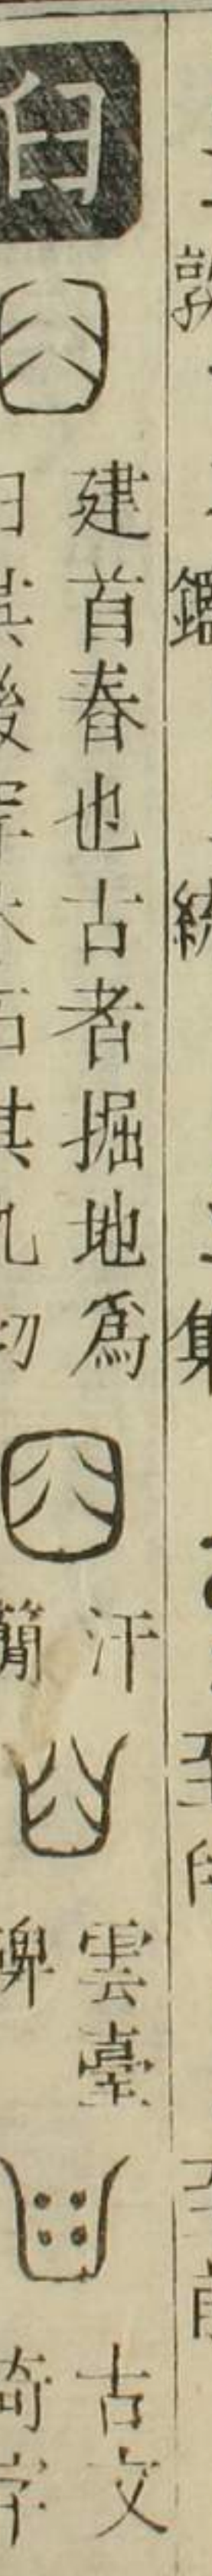 臼
建首春也古者掘地爲
臼其後穿木石其九切
汗
簡
雲臺
碑
古文
奇字